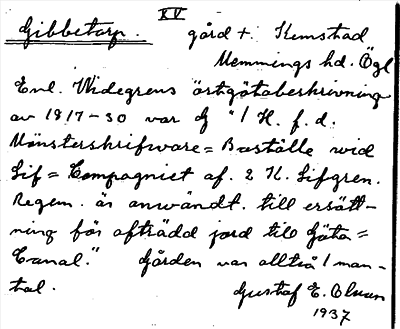 XV
Gibbetorp. gård + Kimstad
Memmings hd. Ögl
Enl. Widegrens östgötabeskrivning
av 1817-30 var G "1 H. f. d.
Mönsterskrifvare = Boställe wid
Lif = Compagniet af. 2 K. Lifgren.
Regem. är anwändt. till ersätt-
ning för afträdd jord till Göta =
Canal." Gården var alltså 1 man-
tal. Gustaf E. Olsson
1937